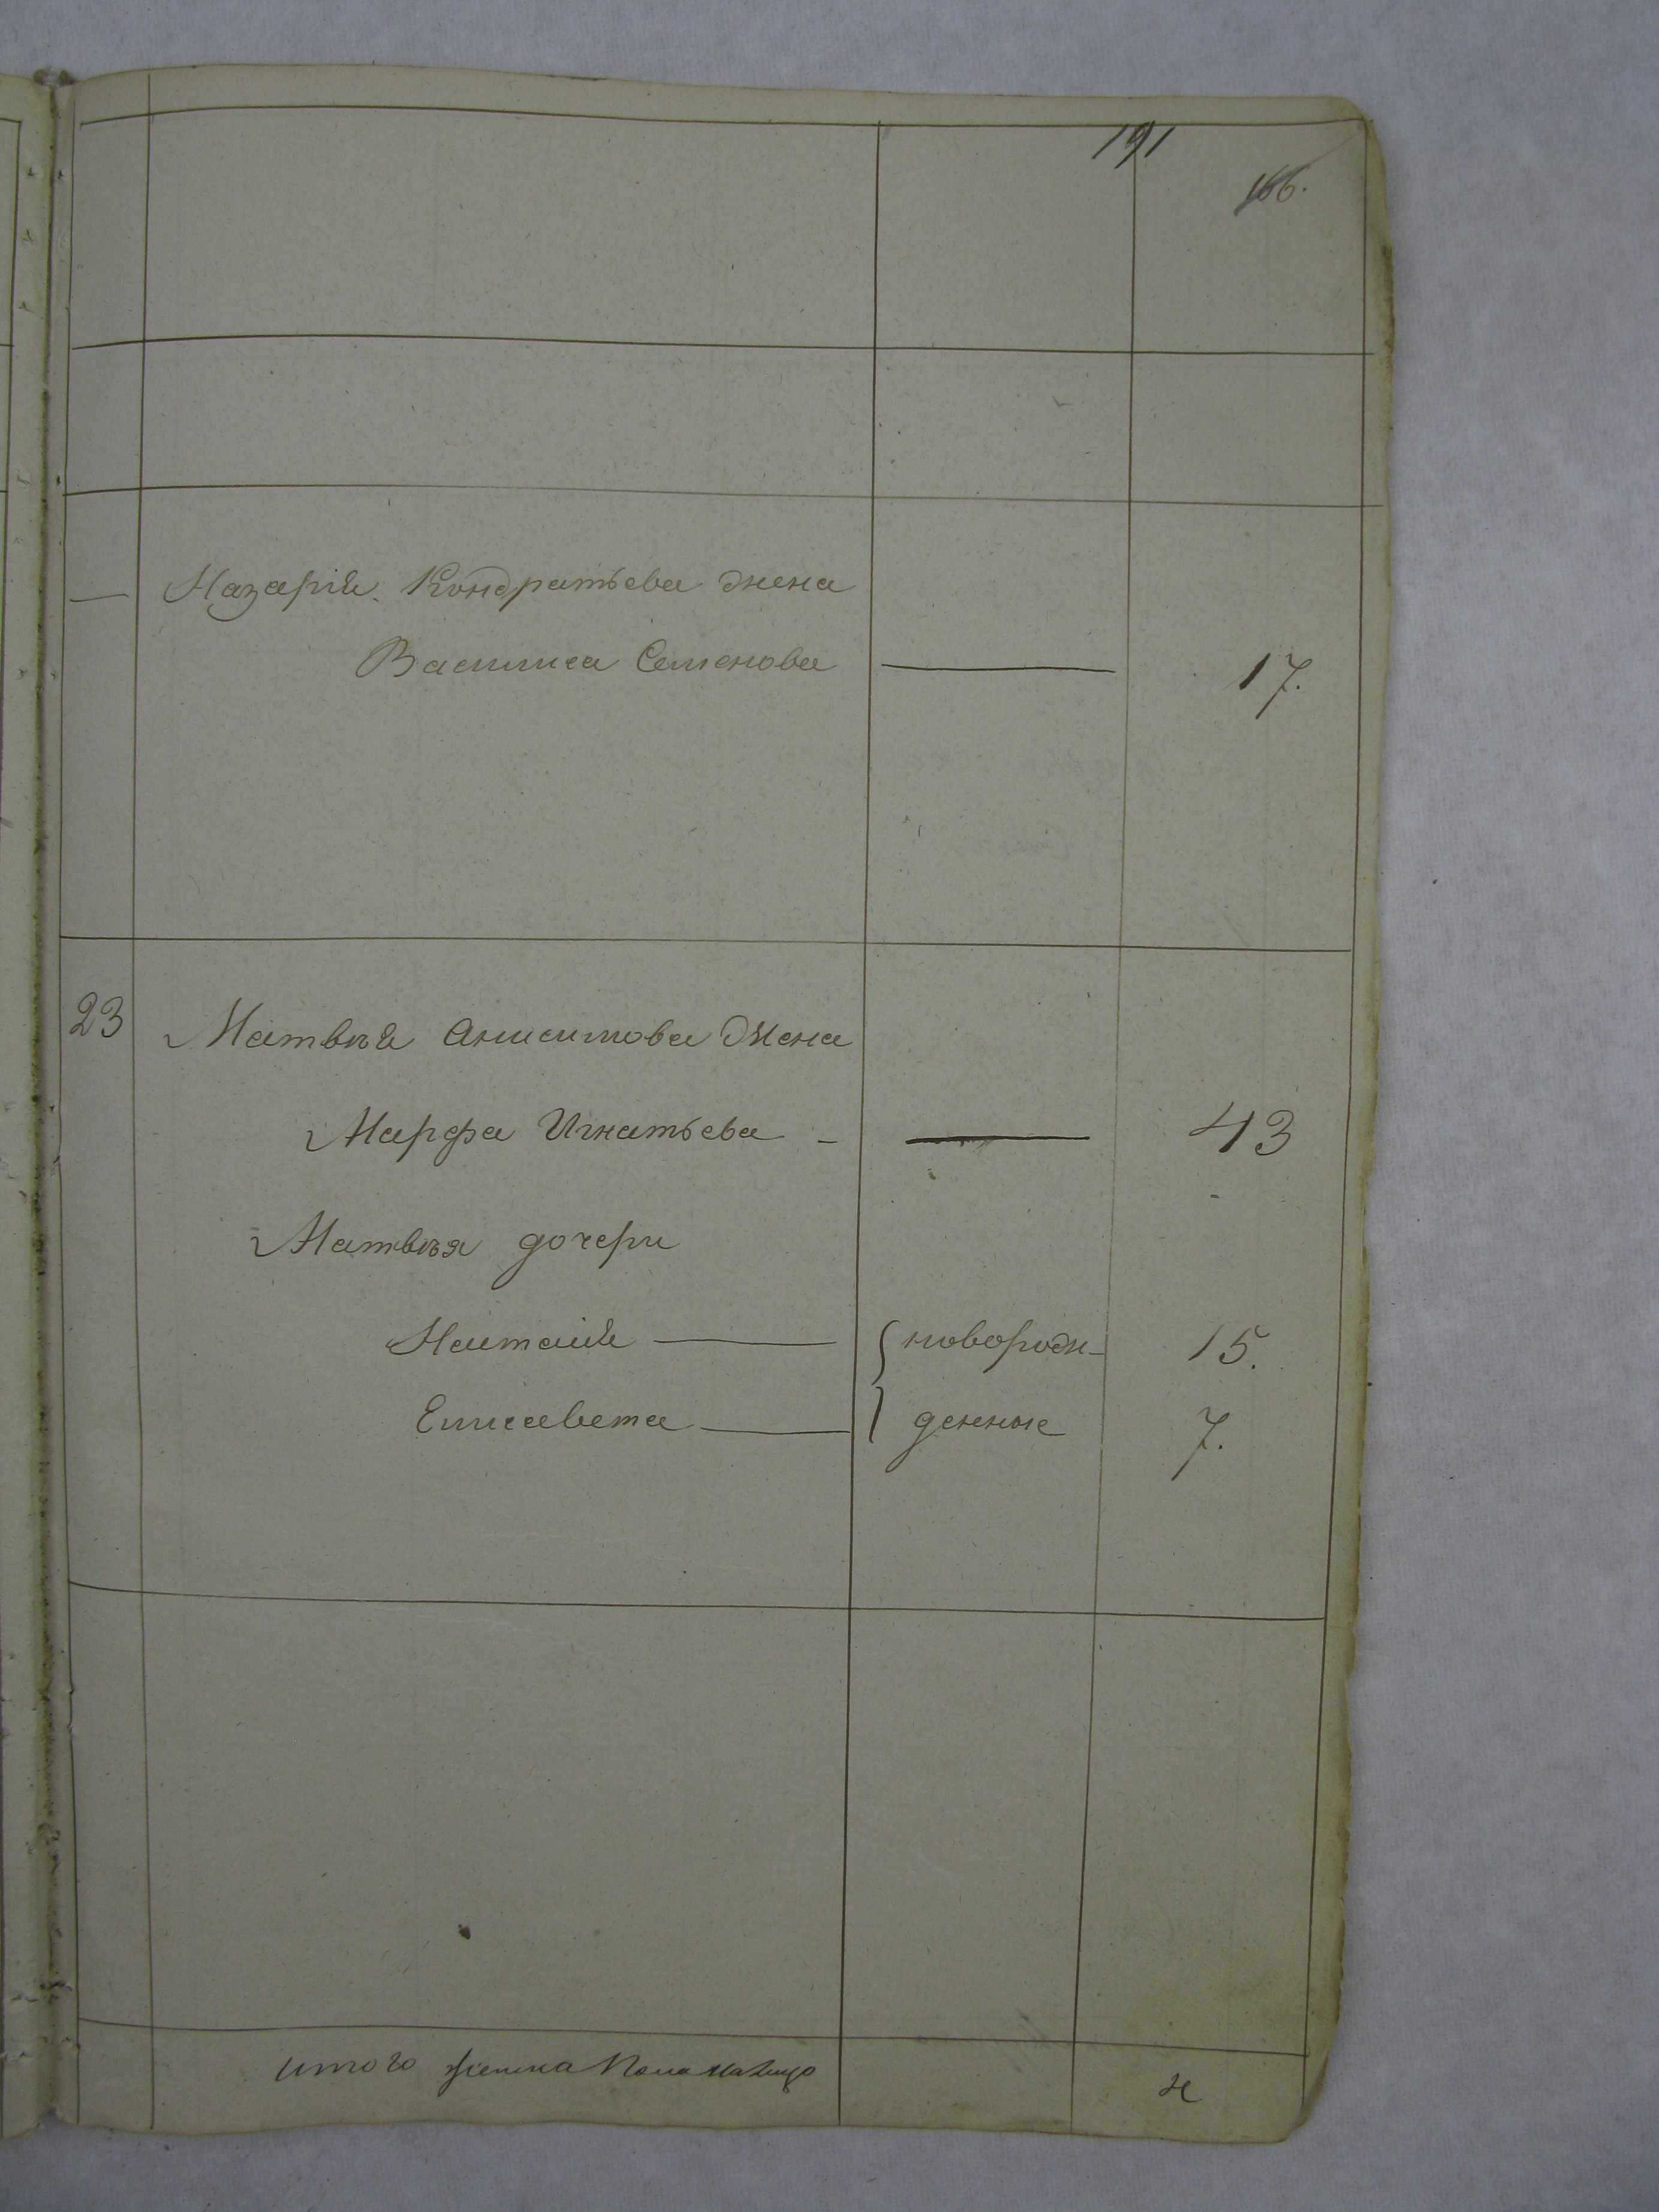 191
166.
— Назарія Кондратьева жена
Василиса Семенова — 17.
23 Матвѣя Анисимова Жена
Марфа Игнатьева - — 43
Матвѣя дочери
Наталія — новорож- 15.
Елисавета — денные 7.
итого женска пола налицо 4